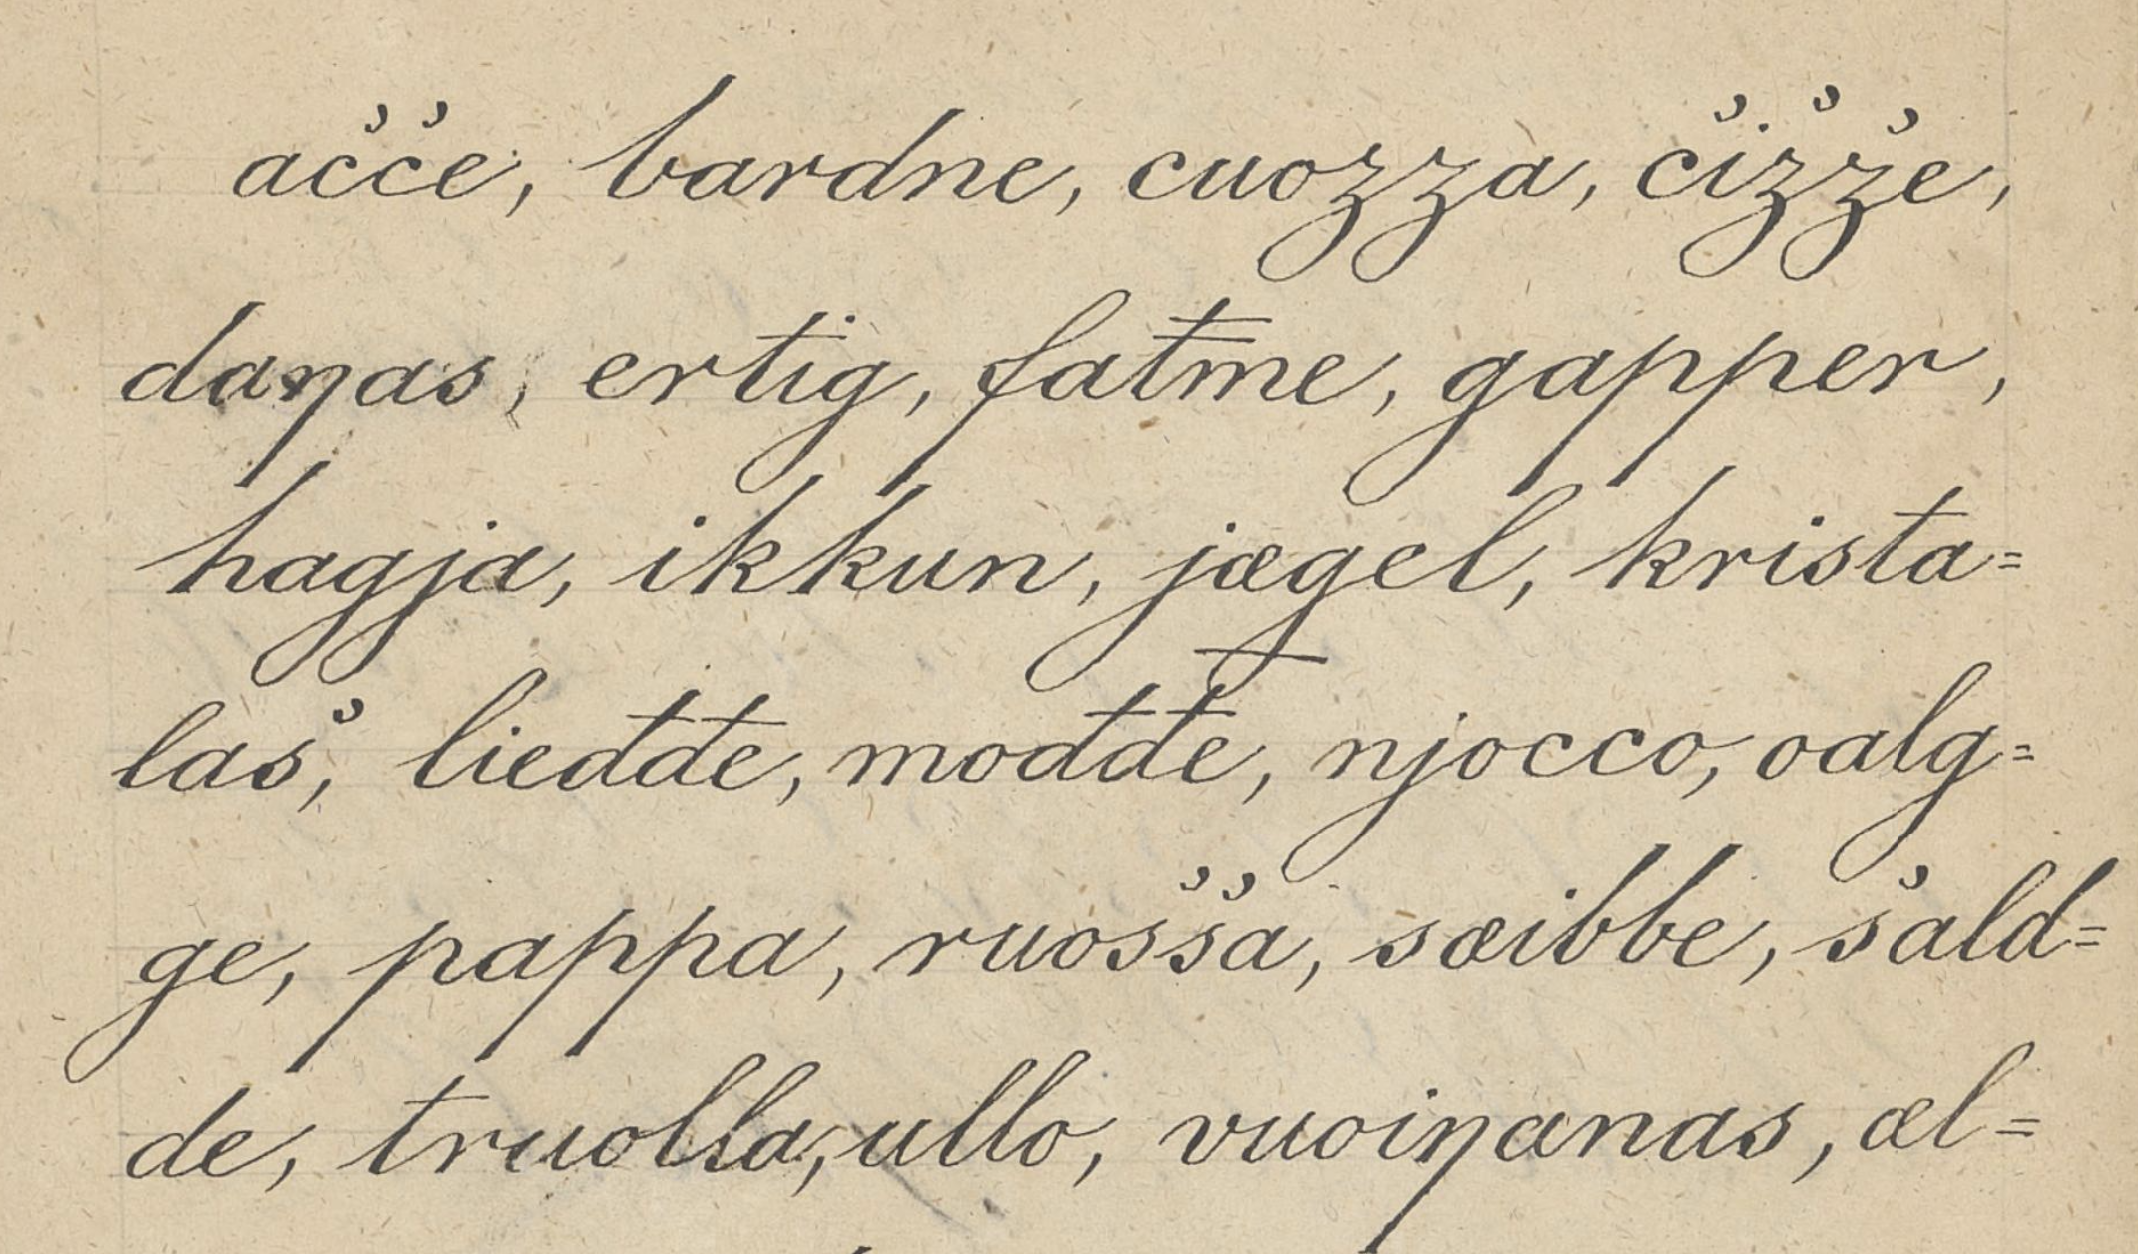 ačče, bardne, cuozza, čižže,
daŋas, ertig, fatme, gapper,
hagja, ikkun, jægel, krista=
laš, lieđđe, mođđe, njocco, oalg=
ge, pappa, ruošša, sæibbe, šald=
de, truolla, ullo, vuoiŋanas, æl=